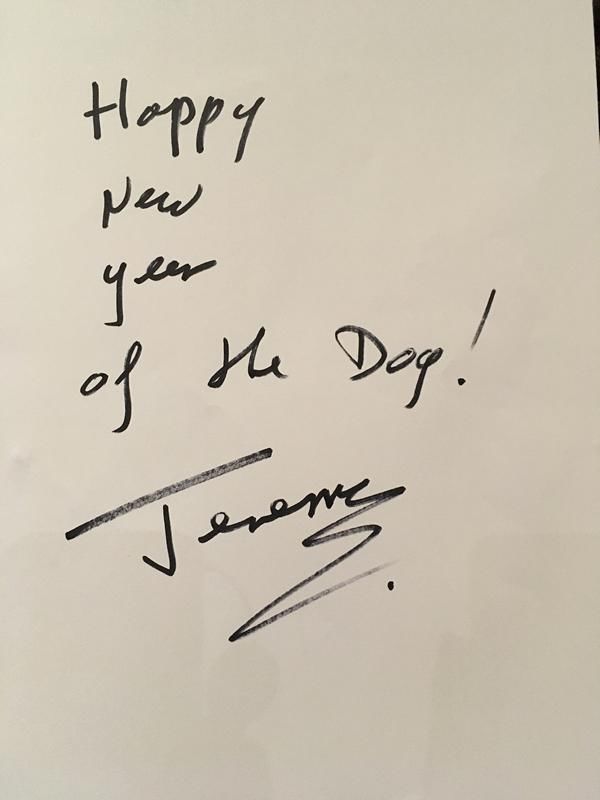 Happy
New
year
of the Dog!
Jeremy.